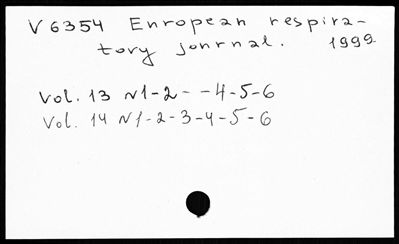 V 6354 Enropean respira-
tory jonrnal. 1999
Vol. 13 N1-2- -4-5-6
Vol. 14 N1-2-3-4-5-6